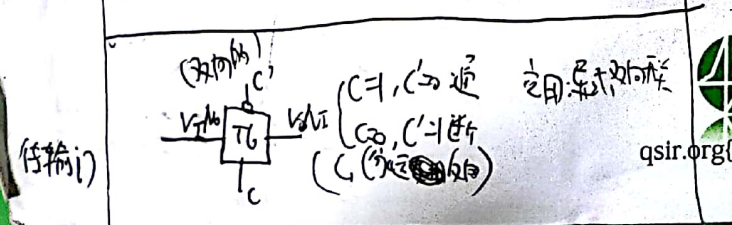 传输门
(双向的)
C'
V_I/V_O TG V_O/V_I
C
C=1, C'=0 通
C=0, C'=1 断
(C, C'一定反向)
应用: 模拟双向开关
qsir.org